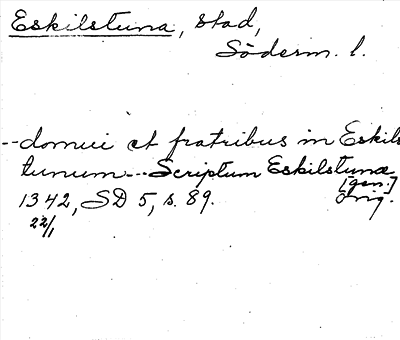 Eskilstuna, stad,
Söderm. l.
--domui et fratribus in Eskils
tunum--- Scriptum Eskilstunæ
[gen.]
1342, SD 5, s. 89. Orig.
22/1